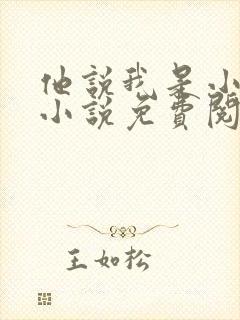 他說我是小
小說免費閱
王如松